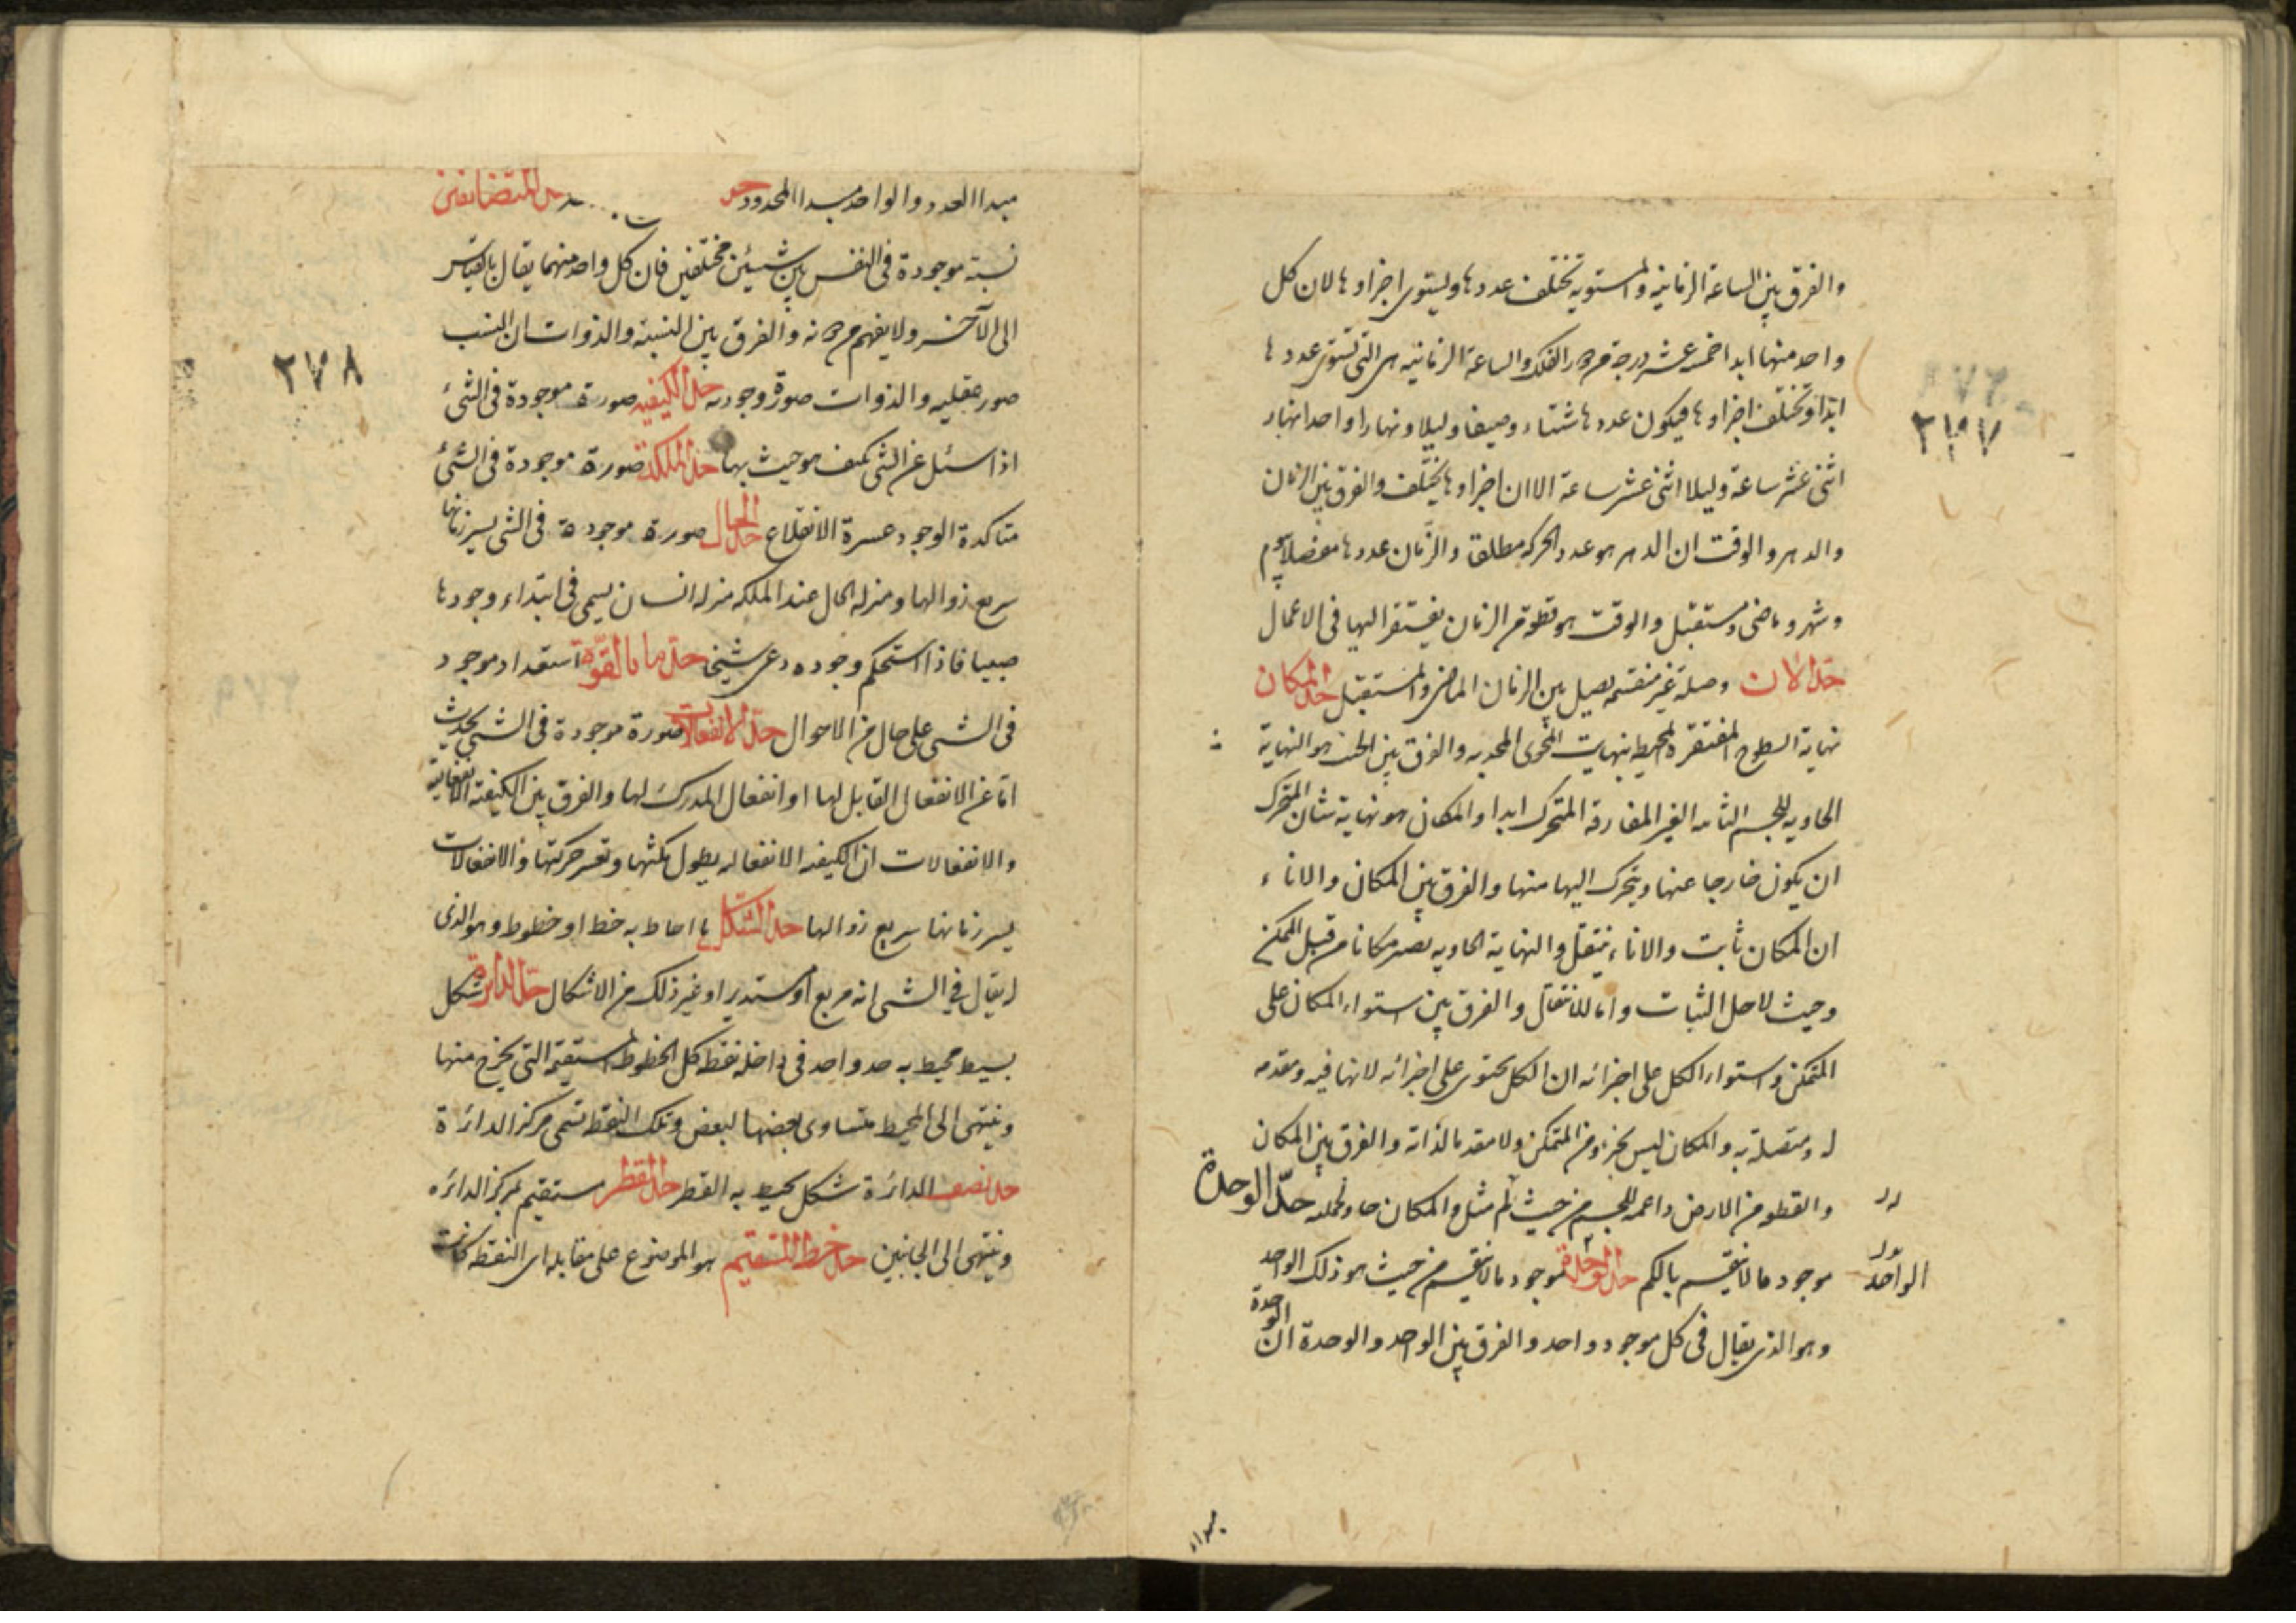 والفرق بين الساعة الزمانيه والمستويه تختلف عددها ويستوى اجزاوها لان كل
واحد منها ابدا خمسه عشر درجة من دور الفلك والساعة الزمانيه هى التى تستوى عددها
ابدا وتختلف اجزاوها فيكون عددها شتاء وصيفا وليلا ونهارا واحدا نهار
اثنى عشر ساعة وليلا اثنى عشر ساعة الا ان اجزاوها يختلف والفرق بين الزمان
والدهر والوقت ان الدهر هو عدد الحركه مطلقا والزمان عددها مفصلا بيوم
وشهر وماضى ومستقبل والوقت هو قطعه من الزمان يفتقر اليها فى الاعمال
حد الان وصلة غير منقسمه يصل بين الزمان الماضى والمستقبل حد المكان
نهاية السطوح المقعره المحيط بنهايت المحوى المحدبه والفرق بين الحيث هو النهاية
الحاويه للجسم الثابت الغير المفارقه المتحرك ابدا والمكان هو نهاية شان المتحرك
ان يكون خارجا عنها ويتحرك اليها منها والفرق بين المكان والاناء
ان المكان ثابت والاناء ينتقل والنهاية الحاويه يصير مكانا من قبل المتمكن
وحيث لاجل الثبات واما للانتقال والفرق بين استواء المكان على
المتمكن واستواء الكل على اجزائه ان الكل يحتوى على اجزائه لانها فيه ومقدمه
له ومتصلة به والمكان ليس بجزء من المتمكن ولا مقدما لذاته والفرق بين المكان
والقطعه من الارض داعمه للجسم من حيث لم مثل والمكان حاو لجملته حدّ الوحدة
الواحد
موجود ما لا ينقسم بالكم حد الوحدة موجود ما لا ينقسم من حيث هو ذلك الواحد
وهو الذى يقال فى كل موجود واحد والفرق بين الواحد والوحدة ان الوحدة
مبدا
٢٧٧
مبدا العدد والواحد مبدا المعدود حد المتضايفين
نسبة موجودة فى النفس بين شيئين مختلفين فان كل واحد منهما يقال بالقياس
الى الآخر ولا يفهم من دونه والفرق بين النسبة والذوات ان النسب
صور عقليه والذوات صورة وجوديه حد الكيفيه صورة موجودة فى الشئ
اذا سئل عن الشى كيف هو حيث بها حد الملكة صورة موجودة فى الشئ
متاكدة الوجود عسرة الانقلاع حد الحال صورة موجودة فى الشى يسير زمانها
سريع زوالها ومنزله الحال عند الملكه منزله انسان يسمى فى ابتداء وجودها
صبيا فاذا استحكم وجوده دعى شيخى حدّ ما بالقوّة استعداد موجود
فى الشى على حال من الاحوال حدّ الانفعالات صورة موجودة فى الشئ يحدث
اما عن الانفعال القابل لها او انفعال المدرك لها والفرق بين الكيفيه الانفعاليه
والانفعالات ان الكيفيه الانفعاليه يطول مكثها وتعسر حركتها والانفعالات
يسير زمانها سريع زوالها حد الشكل ما احاط به خط او خطوط وهو الذى
له يقال فى الشى انه مربع او مستدير او غير ذلك من الاشكال حد الدايرة شكل
بسيط يحيط به حد واحد فى داخله نقط كل الخطوط المستقيمة التى يخرج منها
وينتهى الى المحيط متساوى بعضها لبعض وتلك النقط تسمى مركز الدائرة
حد نصف الدائرة شكل يحيط به القطر حد القطر مستقيم بمركز الدائره
وينتهى الى الجانبين حد خط المستقيم هو الموضوع على مقابله اى النقط كانت
٢٧٨